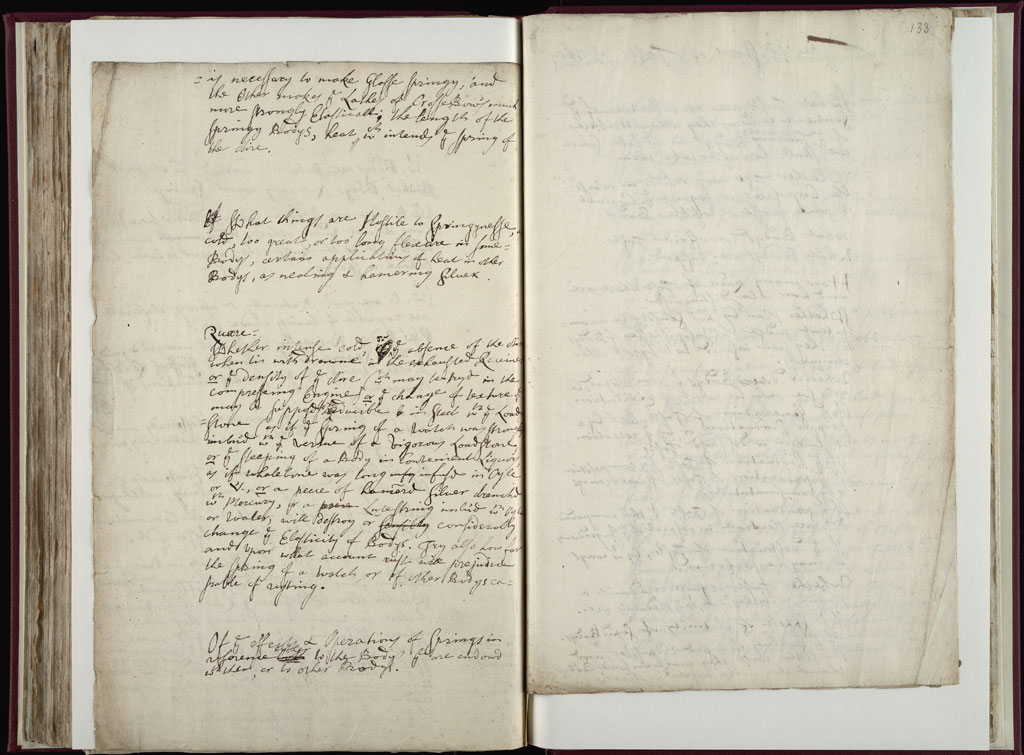 = is necessary to make Glasse springy, and
the other makes ye Lathes of Crosse Bows much
more strongly Elasticall; the length of the
springy Bodys, heat wch intends ye spring of
the Aire.
What things are Hostile to Springynesse,
cold, too great, or too long flexure in some=
Bodys, certain applications of heat in other
Bodys, as nealing & hamering Siluer.
Quære=
Whether intense cold, or ye absence of the Aire
when tis withdrawne in the exhausted Receiver
or ye density of ye Aire (wch may be tryd in the
compressing Engine) or ye change of texture
may be supposd producible in Steel wth ye Load
=stone (as if ye spring of a Watch was strongly
imbud wth ye vertue of a vigorous Loadstone
or ye steeping of a Body in Convenient Liquors
as if whalebone was long infusd in Oyle
or V., or a peece of hamerd Siluer drenchd
wth Mercury, or a Lutestring imbud wth Oyle
or Water, will destroy or considerably
change ye Elasticity of Bodys. Try also how far
and upon what account rust will prejudice
the spring of a Watch or of other Bodys ca=
pable of rusting.
Of ye effects & Operations of Springs in
reference to the Body yt are endond
wth them, or to other Bodys.
133